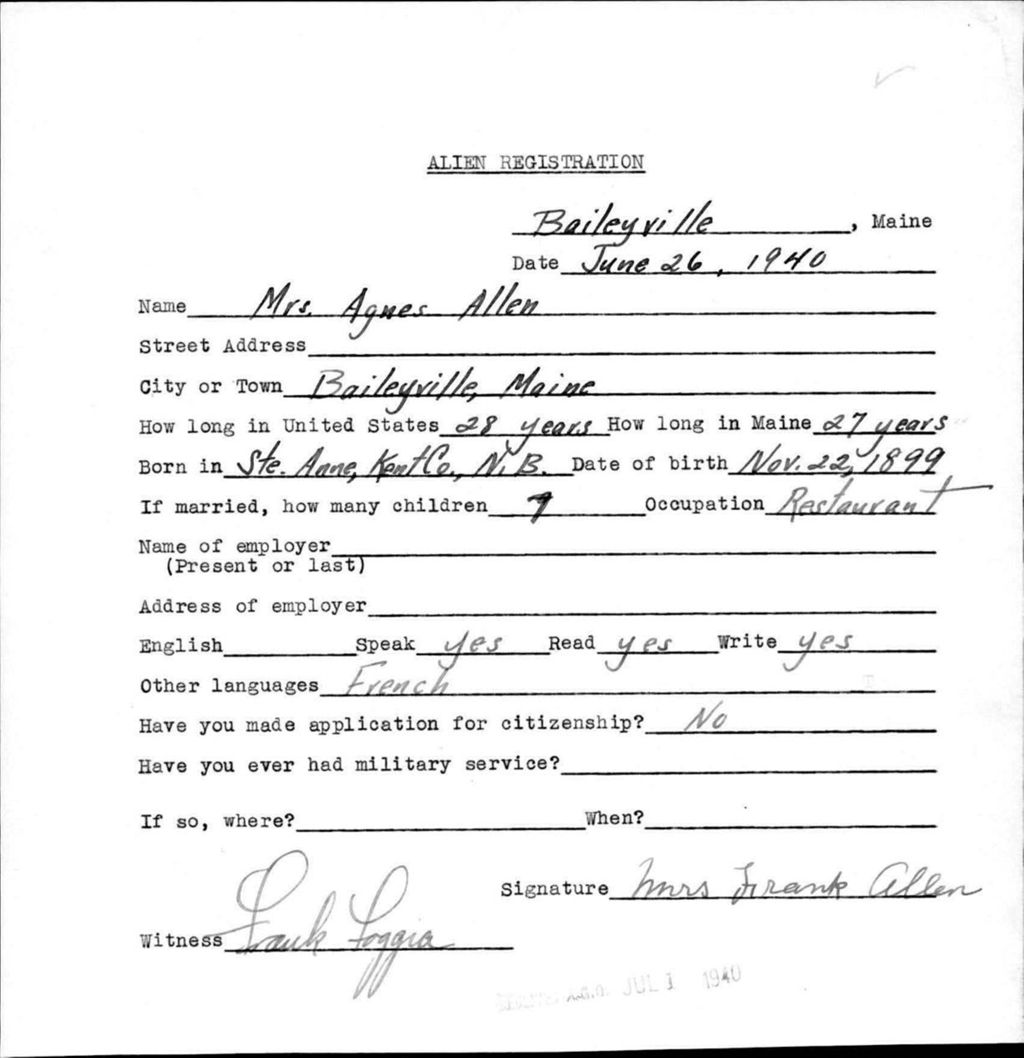 ALIEN REGISTRATION
Baileyville, Maine
Date June 26, 1940
Name Mrs. Agnes Allen
Street Address
City or Town Baileyville, Maine
How long in United States 28 years How long in Maine 27 years
Born in Ste. Anne, Kent Co., N.B. Date of birth Nov. 22, 1899
If married, how many children Occupation Restaurant
Name of employer
(Present or last)
Address of employer
English Speak yes Read yes Write yes
Other languages French
Have you made application for citizenship? No
Have you ever had military service?
If so, where? When?
Signature Mrs Frank Allen
Witness Frank Foggia
JUL 1 1940